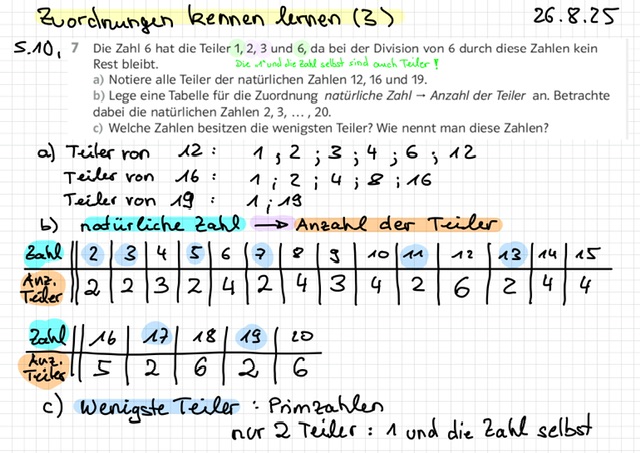 Zuordnungen kennen lernen (3) 26.8.25
S.10, 7 Die Zahl 6 hat die Teiler 1, 2, 3 und 6, da bei der Division von 6 durch diese Zahlen kein
Rest bleibt. Die "1" und die Zahl selbst sind auch Teiler!
a) Notiere alle Teiler der natürlichen Zahlen 12, 16 und 19.
b) Lege eine Tabelle für die Zuordnung natürliche Zahl → Anzahl der Teiler an. Betrachte
dabei die natürlichen Zahlen 2, 3, ... , 20.
c) Welche Zahlen besitzen die wenigsten Teiler? Wie nennt man diese Zahlen?
a) Teiler von 12 : 1 ; 2 ; 3 ; 4 ; 6 ; 12
Teiler von 16 : 1 ; 2 ; 4 ; 8 ; 16
Teiler von 19 : 1 ; 19
b) natürliche Zahl → Anzahl der Teiler
Zahl 2 3 4 5 6 7 8 9 10 11 12 13 14 15
Anz. Teiler 2 2 3 2 4 2 4 3 4 2 6 2 4 4
Zahl 16 17 18 19 20
Anz. Teiler 5 2 6 2 6
c) Wenigste Teiler : Primzahlen
nur 2 Teiler : 1 und die Zahl selbst